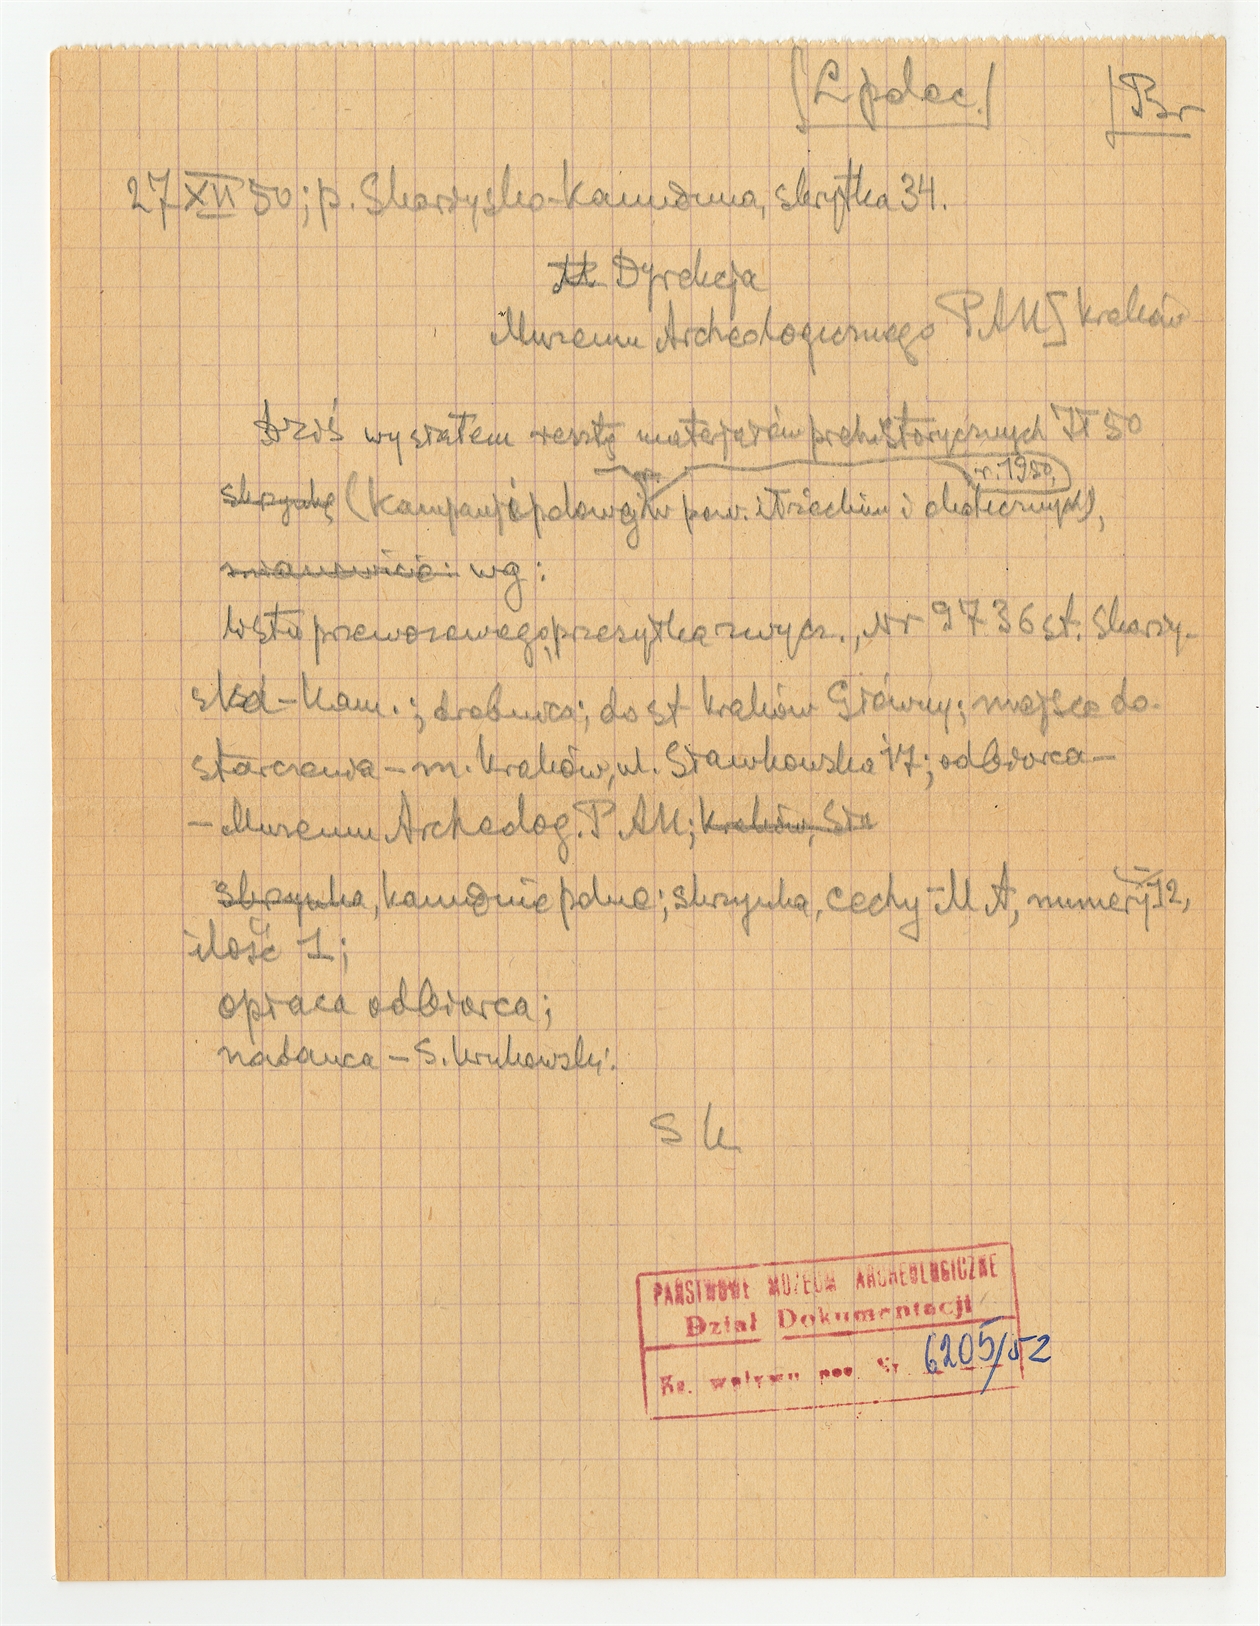 [L polec.] |Br
27 XII 50; p. Skarżysko-Kamienna, skrytka 34.
Dyrekcja
Muzeum Archeologicznego P.AU] Kraków
Dziś wysłałem resztę materjałów prehistorycznych 50
skrzynkę (Kampanji polowej w pow. iłżeckim i okolicznych),
r. 1950,
mianowicie: wg:
listu przewozowego, przesyłka zwycz., Nr 9736 st. Skarży-
sko-Kam.; drobnica; do st Kraków Główny; miejsce do-
starczenia – m. Kraków, ul. Sławkowska 17; odbiorca –
– Muzeum Archeolog. P.AU; Kraków, Sła
skrzynka, kamienie polne; skrzynka, cechy – M A, numery 12,
ilość 1;
opłaca odbiorca;
nadawca – S. Krukowski.
S K
PAŃSTWOWE MUZEUM ARCHEOLOGICZNE
Dział Dokumentacji
Ks. wpływu poz. Nr. 6205/52